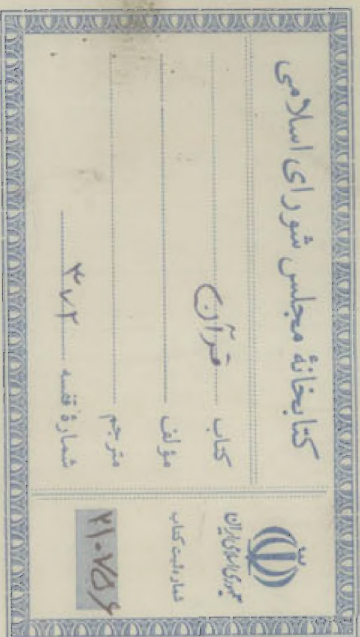 کتابخانهٔ مجلس شورای اسلامی
کتاب قرآن
مؤلف
مترجم
شمارهٔ قفسه ۳۷۲
جمهوری اسلامی ایران
شماره ثبت کتاب
۲۱۰۷۵۶